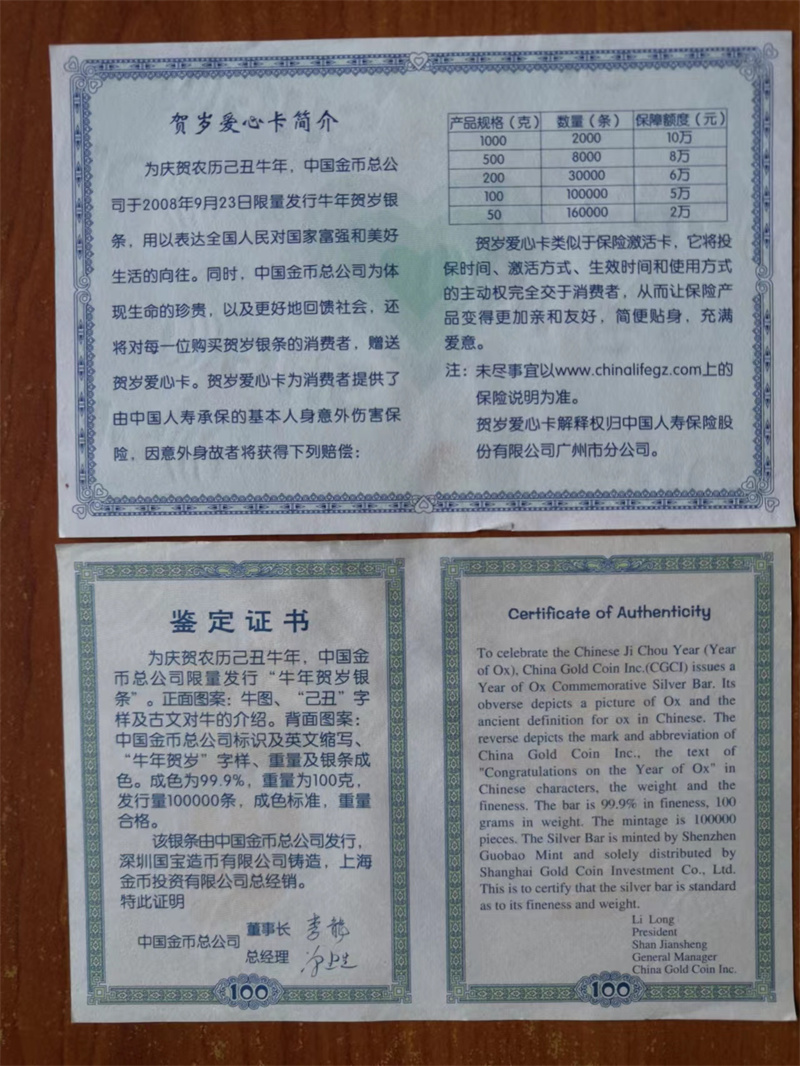 贺岁爱心卡简介
为庆贺农历己丑牛年，中国金币总公
司于2008年9月23日限量发行牛年贺岁银
条，用以表达全国人民对国家富强和美好
生活的向往。同时，中国金币总公司为体
现生命的珍贵，以及更好地回馈社会，还
将对每一位购买贺岁银条的消费者，赠送
贺岁爱心卡。贺岁爱心卡为消费者提供了
由中国人寿承保的基本人身意外伤害保
险，因意外身故者将获得下列赔偿：
产品规格（克） 数量（条） 保障额度（元）
1000 2000 10万
500 8000 8万
200 30000 6万
100 100000 5万
50 160000 2万
贺岁爱心卡类似于保险激活卡，它将投
保时间、激活方式、生效时间和使用方式
的主动权完全交于消费者，从而让保险产
品变得更加亲和友好，简便贴身，充满
爱意。
注：未尽事宜以www.chinalifegz.com上的
保险说明为准。
贺岁爱心卡解释权归中国人寿保险股
份有限公司广州市分公司。
鉴定证书
为庆贺农历己丑牛年，中国金
币总公司限量发行“牛年贺岁银
条”。正面图案：牛图、“己丑”字
样及古文对牛的介绍。背面图案：
中国金币总公司标识及英文缩写、
“牛年贺岁”字样、重量及银条成
色。成色为99.9%，重量为100克，
发行量100000条，成色标准，重量
合格。
该银条由中国金币总公司发行，
深圳国宝造币有限公司铸造，上海
金币投资有限公司总经销。
特此证明
中国金币总公司
董事长 李龙
总经理
100
Certificate of Authenticity
To celebrate the Chinese Ji Chou Year (Year
of Ox), China Gold Coin Inc.(CGCI) issues a
Year of Ox Commemorative Silver Bar. Its
obverse depicts a picture of Ox and the
ancient definition for ox in Chinese. The
reverse depicts the mark and abbreviation of
China Gold Coin Inc., the text of
"Congratulations on the Year of Ox" in
Chinese characters, the weight and the
fineness. The bar is 99.9% in fineness, 100
grams in weight. The mintage is 100000
pieces. The Silver Bar is minted by Shenzhen
Guobao Mint and solely distributed by
Shanghai Gold Coin Investment Co., Ltd.
This is to certify that the silver bar is standard
as to its fineness and weight.
Li Long
President
Shan Jiansheng
General Manager
China Gold Coin Inc.
100